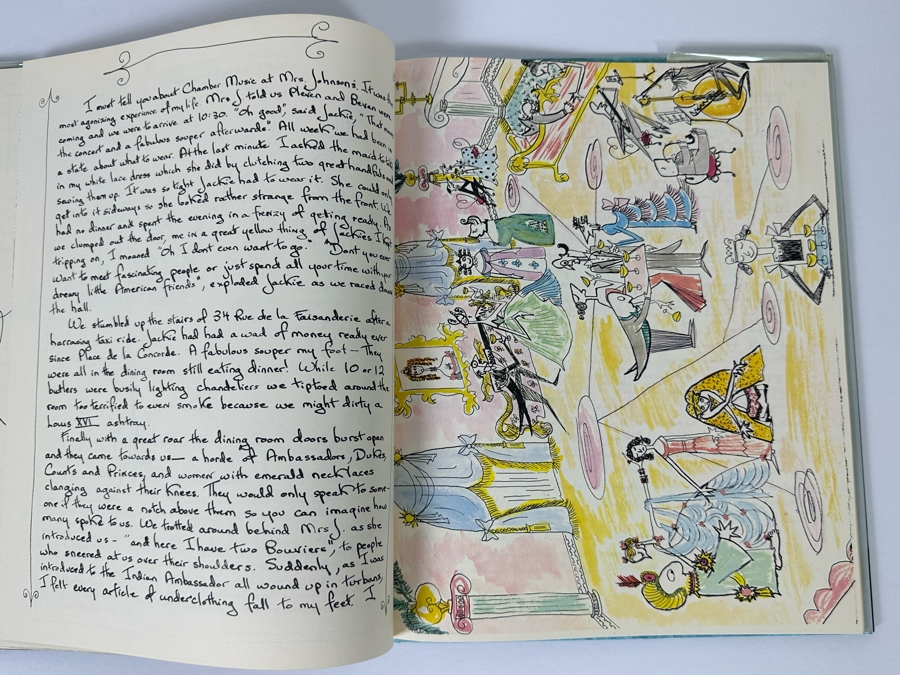 I must tell you about Chamber Music at Mrs. Johnson's. It was the
most agonizing experience of my life. Mrs J told us Pleven and Bevan were
coming and we were to arrive at 10:30. "Oh good", said Jackie, "That means
the concert and a fabulous souper afterwards". All week we had been in
a state about what to wear. At the last minute I asked the maid to take
in my white lace dress which she did by clutching two great handfuls and
sewing them up. It was so tight Jackie had to wear it. She could only
get into it sideways so she looked rather strange from the front. We
had no dinner and spent the evening in a frenzy of getting ready. As
we clumped out the door, me in a great yellow thing of Jackie's I kept
tripping on, I moaned "Oh I don't even want to go." "Don't you ever
want to meet fascinating people or just spend all your time with your
dreary little American friends", exploded Jackie as we raced down
the hall.
We stumbled up the stairs of 34 Rue de la Faisanderie after a
harrowing taxi ride. Jackie had had a wad of money ready ever
since Place de la Concorde. A fabulous souper my foot — They
were all in the dining room still eating dinner! While 10 or 12
butlers were busily lighting chandeliers we tiptoed around the
room too terrified to even smoke because we might dirty a
Louis XVI ashtray.
Finally with a great roar the dining room doors burst open
and they came towards us — a horde of Ambassadors, Dukes,
Counts and Princes, and women with emerald necklaces
clanging against their knees. They would only speak to some-
one if they were a notch above them so you can imagine how
many spoke to us. We trotted around behind Mrs J as she
introduced us - "and here I have two Bouviers", to people
who sneered at us over their shoulders. Suddenly, as I was
introduced to the Indian Ambassador all wound up in turbans,
I felt every article of underclothing fall to my feet. I